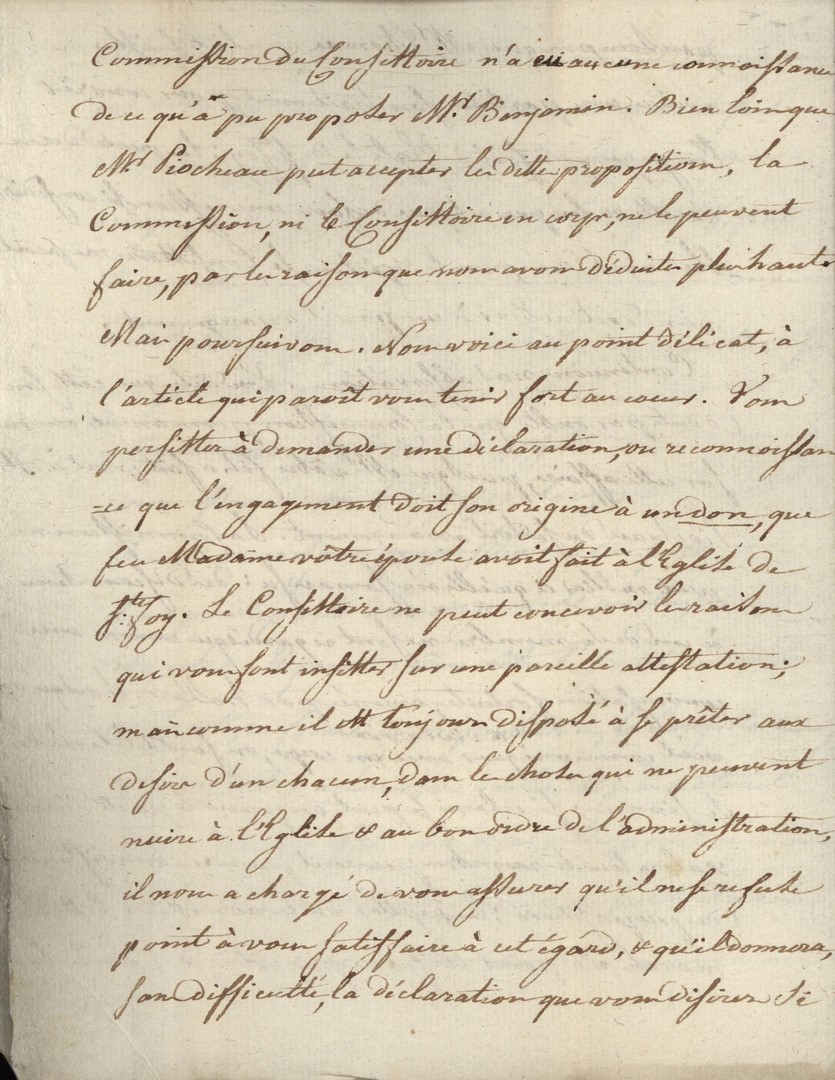 Commission du Consistoire n'a eu aucune connoissance
de ce qu'a pu proposer Mr. Benjamin. Bien loin que
Mr Piocheau put accepter les dittes propositions, la
Commission, ni le Consistoire en corps, ne le peuvent
faire, par les raisons que nous avons déduites plus haut.
Mais poursuivons. Nous voici au point délicat, à
l'article qui paroît vous tenir fort au coeur. Vous
persistes à demander une déclaration, ou reconnoissan
=ce que l'engagement doit son origine à un don, que
feu Madame vôtre épouse avoit fait à l'Eglise de
Ste. Foy. Le Consistoire ne peut concevoir les raisons
qui vous font insister sur une pareille attestation;
mais comme il est toujours disposé à se prêter aux
desirs d'un chacun, dans les choses qui ne peuvent
nuire à l'Eglise & au bon ordre de l'administration,
il nous a chargé de vous assurer qu'il ne se refuse
point à vous satisfaire à cet égard, & qu'il donnera,
sans difficulté, la déclaration que vous désirez Si